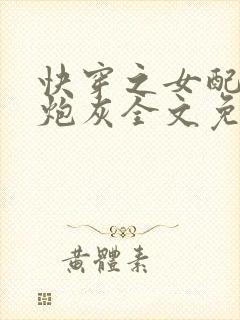 快穿之女配
炮灰全文免
黄體素